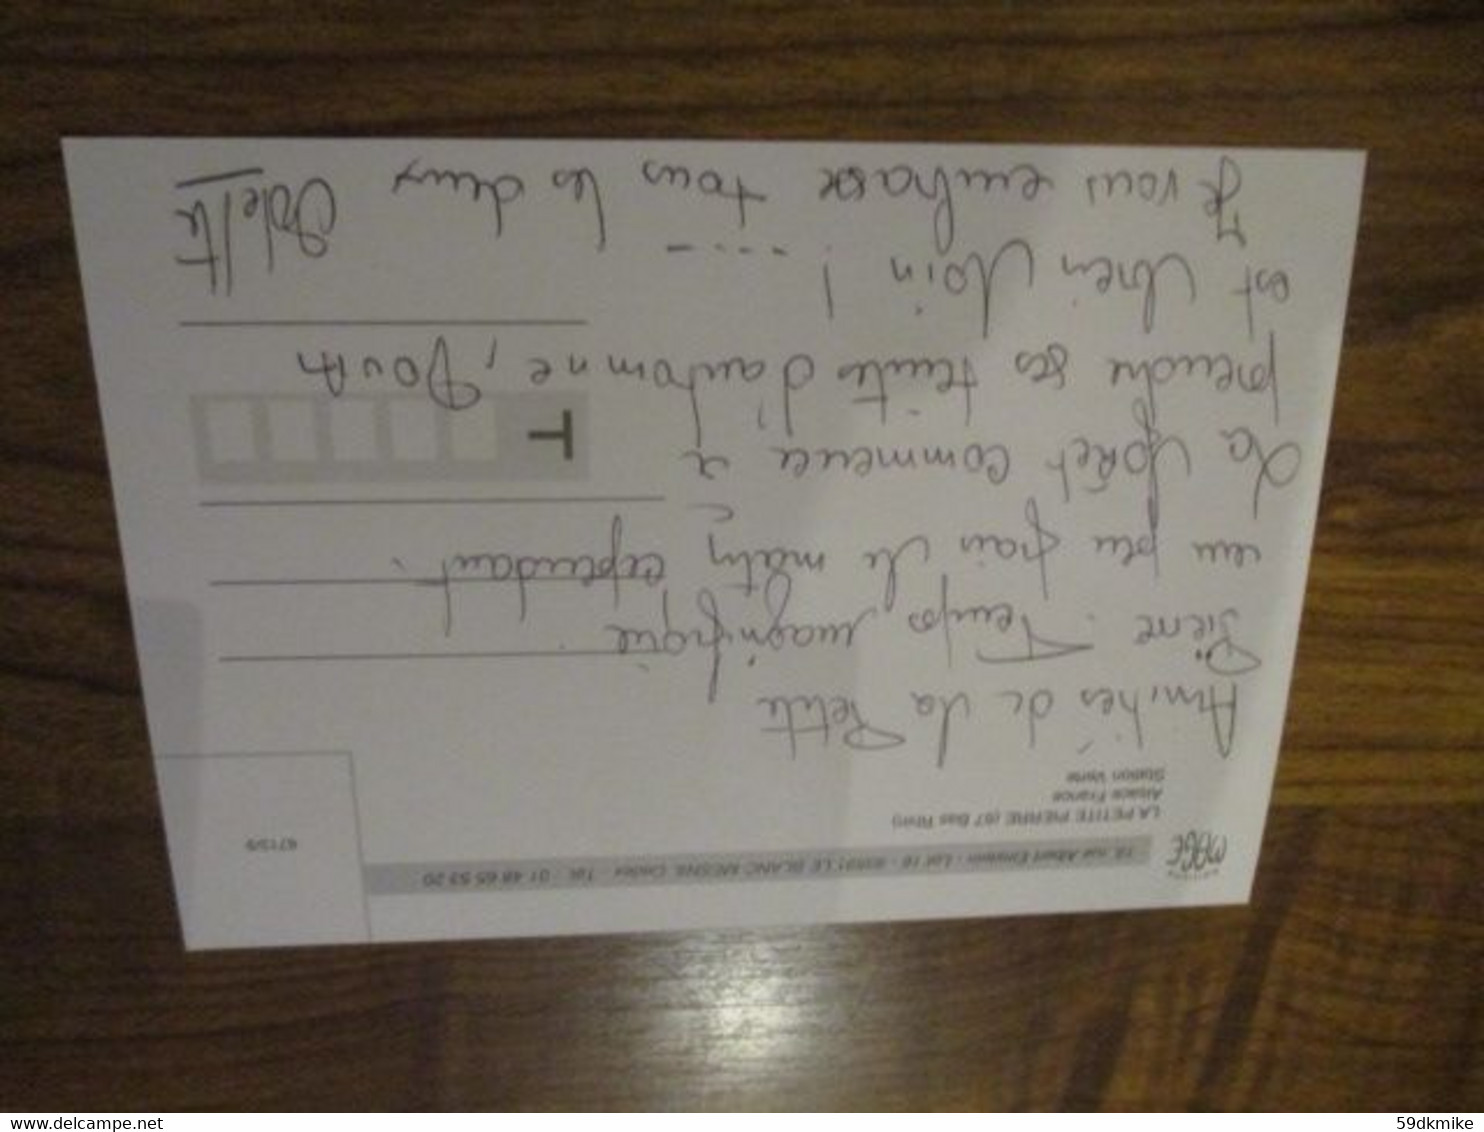 MAGE
13, rue Albert Einstein - Lot 16 - 93591 LE BLANC MESNIL Cedex - Tél. : 01 48 65 53 20
LA PETITE PIERRE (67 Bas Rhin)
Alsace France
Station Verte
6713/9
Amitiés de La Petite
Pierre. Temps magnifique
un peu frais le matin cependant.
La forêt commence à
prendre ses teintes d'automne,
est bien loin ! ....
Je vous embrasse tous les deux
T
www.delcampe.net
59dkmike